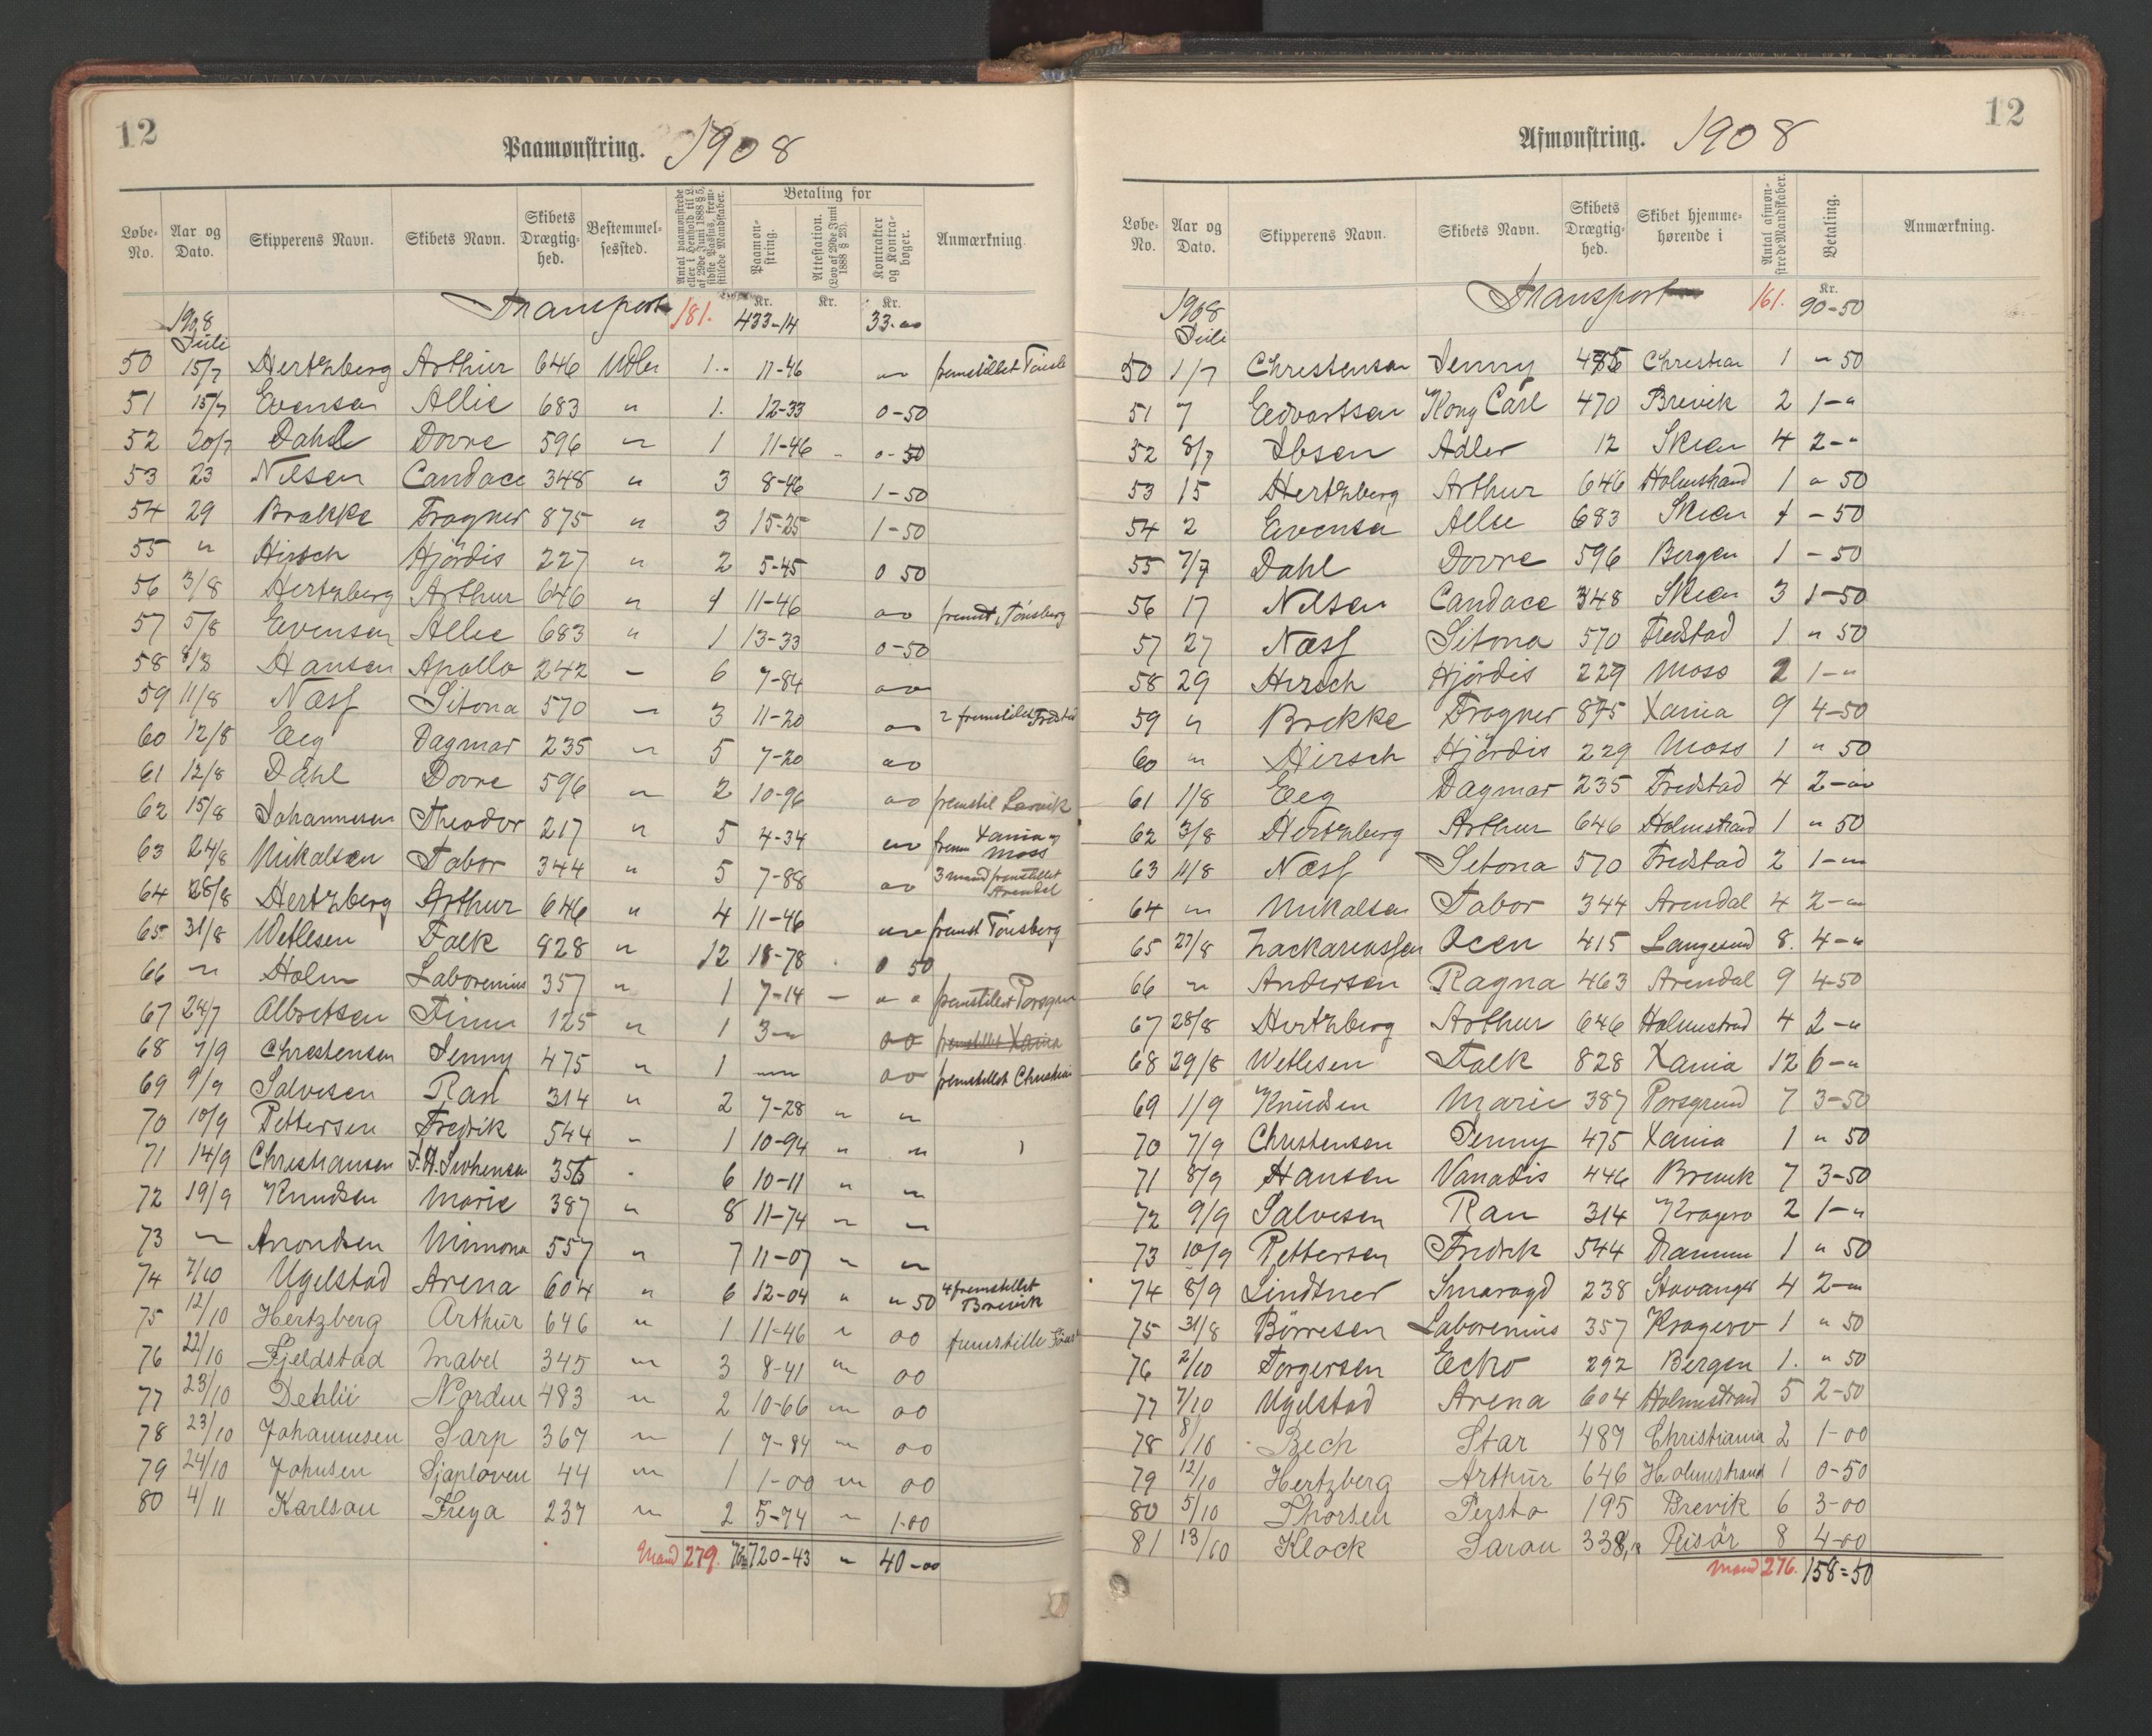 12
Paamønstring. 1908
Løbe-No. Aar og Dato. Skipperens Navn. Skibets Navn. Skibets Drægtighed. Bestemmelsessted. Betaling for Paamønstring. Attestation. (Lov af 29de Juni 1888 § 23). Kontrakter og Kontrabøger. Anmærkning.
Kr. Kr. Kr.
1908 Transport 181. 433-14 33-00
Juli
50 15/7 Hertzberg Arthur 646 Udler 1 11-46 " fremstillet
51 15/7 Evensen Allie 683 " 1. 12-33 0-50
52 20/7 Dahl Dovre 596 " 1 11-46 - 0-50
53 23 Nilsen Candace 348 " 3 8-46 1-50
54 29 Brekke Frogner 875 " 3 15-25 1-50
55 " Hirsch Hjördis 227 " 2 5-45 0 50
56 3/8 Hertzberg Arthur 646 " 1 11-46 00 fremst. Tönsberg
57 5/8 Evensen Allie 683 " 1 13-33 0-50
58 8/8 Hansen Apollo 242 - 6 7-84 00
59 11/8 Næss Sitona 570 - 3 11-20 00 2 fremstillet Fredstad
60 12/8 Eeg Dagmar 235 " 5 7-20 00
61 12/8 Dahl Dovre 596 " 2 10-96 00 fremstil Larvik
62 15/8 Johannesen Theodor 217 " 5 4-34 00 frem Xania og Moss
63 24/8 Mikalsen Tabor 344 " 5 7-88 00 3 mand fremstillet Arendal
64 28/8 Hertzberg Arthur 646 " 4 11-46 " fremst Tönsberg
65 31/8 Wetlesen Falk 828 " 12 18-78 0 50
66 " Holm Laborenius 357 " 1 7-14 - " " fremstillet Porsgrun
67 24/7 Albretsen Finn 125 " 1 3-" 00 fremstillet Xania
68 7/9 Christensen Jenny 475 " 1 " 00 fremstillet Christian
69 9/9 Salvesen Ran 314 " 2 7-28 " "
70 10/9 Pettersen Fredrik 544 " 1 10-94 " "
71 14/9 Christiansen 356 6 10-11 " "
72 19/9 Knudsen Marie 387 " 8 11-74 " "
73 " Anondsen Mimona 557 " 7 11-07 " "
74 7/10 Ugelstad Arena 604 " 6 12-04 " " 50 4 fremstillet Brevik
75 12/10 Hertzberg Arthur 646 " 1 11-46 " 00 fremstille
76 22/10 Fjeldstad Mabel 345 " 3 8-41 " 00
77 23/10 Dehlii Norden 483 " 2 10-66 " 00
78 23/10 Johannesen Sarp 367 " 1 9-84 " 00
79 24/10 Johnsen Sjapløven 44 " 1 1-00 " 00
80 4/11 Karlson Freya 237 " 2 5-74 " 1-00
Mand 279. 720-43 " 40-00
12
Afmønstring. 1908
Løbe-No. Aar og Dato. Skipperens Navn. Skibets Navn. Skibets Drægtighed. Skibet hjemmehørende i Antal afmønstrede Mandskaber. Betaling. Anmærkning.
Kr.
1908 Transport 161. 90-50
Juli
50 1/7 Christensen Jenny 475 Christian 1 " 50
51 7 Eedvartsen Kong Carl 470 Brevik 2 1-"
52 8/7 Ibsen Adler 12 Skien 4 2-"
53 15 Hertzberg Arthur 646 Holmstrand 1 " 50
54 2 Evensen Allie 683 Skien 1 - 50
55 7/7 Dahl Dovre 596 Bergen 1 - 50
56 17 Nilsen Candace 348 Skien 3 1-50
57 27 Næss Sitona 570 Fredstad 1 " 50
58 29 Hirsch Hjördis 229 Moss 2 1-"
59 " Brekke Frogner 875 Xania 9 4-50
60 " Hirsch Hjördis 229 Moss 1 " 50
61 1/8 Eeg Dagmar 235 Fredstad 4 2-"
62 3/8 Hertzberg Arthur 646 Holmestrand 1 " 50
63 11/8 Næss Sitona 570 Fredstad 2 1-"
64 " Mikalsen Tabor 344 Arendal 4 2-"
65 27/8 Zackariassen Ocen 415 Langesund 8. 4-"
66 " Andersen Ragna 463 Arendal 9 4-50
67 28/8 Hertzberg Arthur 646 Holmestrad 4 2-"
68 29/8 Wetlesen Falk 828 Xania 12 6-"
69 1/9 Knudsen Marie 387 Porsgrund 7 3-50
70 7/9 Christensen Jenny 475 Xania 1 " 50
71 8/9 Hansen Vanadis 446 Brevik 7 3-50
72 9/9 Salvesen Ran 314 Kragerø 2 1-"
73 10/9 Pettersen Fredrik 544 Dramm 1 " 50
74 8/9 Lindtner Smaragd 238 Stavanger 4 2-"
75 31/8 Börresen Laborenius 357 Kragerø 1 " 50
76 2/10 Torgersen Ecko 292 Bergen 1. " 50
77 7/10 Ugelstad Arena 604 Holmestrand 5 2-50
78 8/10 Bech Star 489 Christiania 2 1-00
79 12/10 Hertzberg Arthur 646 Holmestrand 1 0-50
80 5/10 Thorsen Persto 195 Brevik 6 3-00
81 13/10 Klock Saron 338, Risör 8 4-00
Mand 276. 158=50